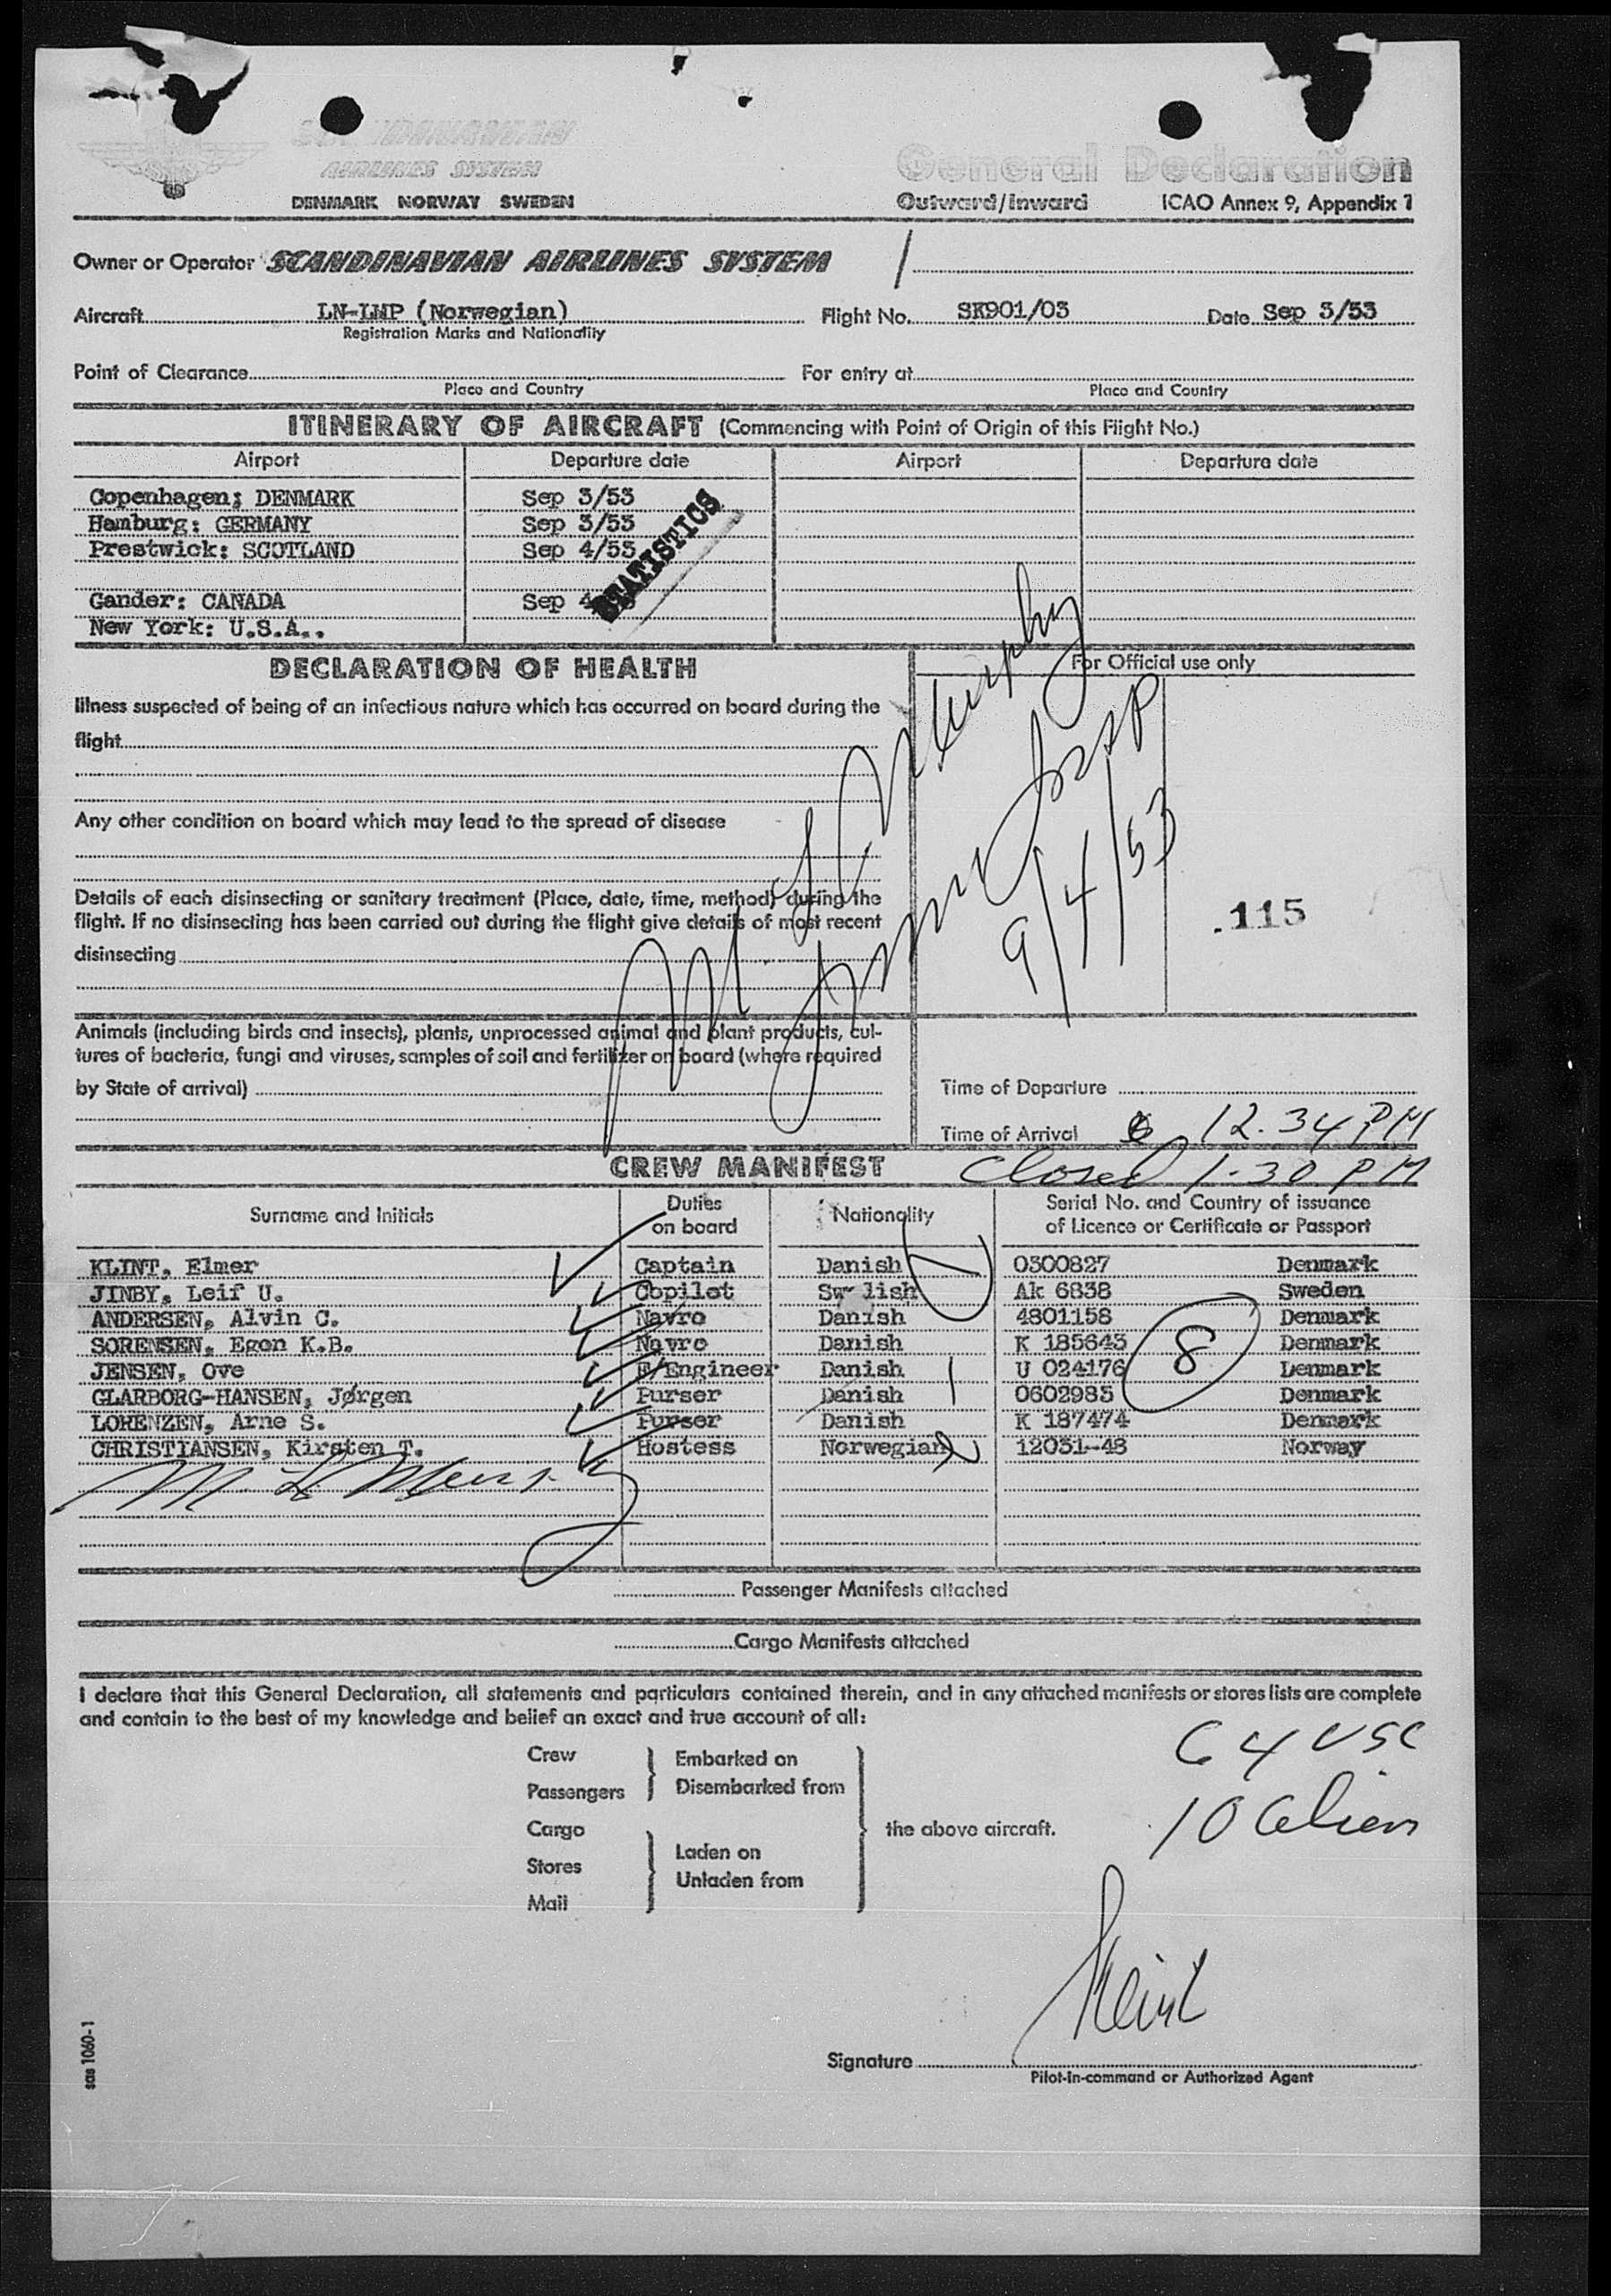 SCANDINAVIAN
AIRLINES SYSTEM
DENMARK NORWAY SWEDEN
General Declaration
Outward/Inward ICAO Annex 9, Appendix 1
Owner or Operator SCANDINAVIAN AIRLINES SYSTEM
Aircraft LN-LMP (Norwegian) Flight No. SK901/03 Date Sep 3/53
Registration Marks and Nationality
Point of Clearance For entry at
Place and Country Place and Country
ITINERARY OF AIRCRAFT (Commencing with Point of Origin of this Flight No.)
Airport Departure date Airport Departure date
Copenhagen; DENMARK Sep 3/53
Hamburg: GERMANY Sep 3/53
Prestwick: SCOTLAND Sep 4/53
STATISTICS
Gander: CANADA Sep 4
New York: U.S.A..
DECLARATION OF HEALTH
For Official use only
Illness suspected of being of an infectious nature which has occurred on board during the
flight
Any other condition on board which may lead to the spread of disease
Details of each disinsecting or sanitary treatment (Place, date, time, method) during the
flight. If no disinsecting has been carried out during the flight give details of most recent
disinsecting
Murphy
9/4/53
.115
Animals (including birds and insects), plants, unprocessed animal and plant products, cul-
tures of bacteria, fungi and viruses, samples of soil and fertilizer on board (where required
by State of arrival)
Time of Departure
Time of Arrival 12.34 PM
Closed 1-30 PM
CREW MANIFEST
Surname and Initials Duties on board Nationality Serial No. and Country of issuance of Licence or Certificate or Passport
KLINT, Elmer Captain Danish 0300827 Denmark
JINBY, Leif U. Copilot Swedish Ak 6838 Sweden
ANDERSEN, Alvin C. Navro Danish 4801158 Denmark
SORENSEN, Egon K.B. Navro Danish K 185643 Denmark
8
JENSEN, Ove F/Engineer Danish 1 U 024176 Denmark
GLARBORG-HANSEN, Jørgen Purser Danish 0602985 Denmark
LORENZEN, Arne S. Purser Danish K 187474 Denmark
CHRISTIANSEN, Kirsten T. Hostess Norwegian 12031-48 Norway
Passenger Manifests attached
Cargo Manifests attached
I declare that this General Declaration, all statements and particulars contained therein, and in any attached manifests or stores lists are complete
and contain to the best of my knowledge and belief an exact and true account of all:
Crew Embarked on
Passengers Disembarked from
Cargo the above aircraft.
Stores Laden on
Mail Unladen from
64 USC
10 alien
Klint
Signature
Pilot-in-command or Authorized Agent
sas 1060-1